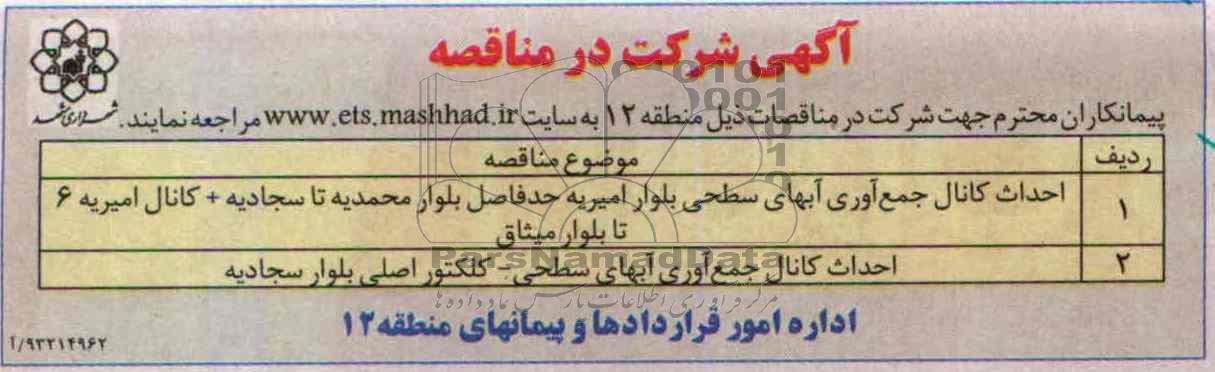 آگهی شرکت در مناقصه
پیمانکاران محترم جهت شرکت در مناقصات ذیل منطقه ۱۲ به سایت www.ets.mashhad.ir مراجعه نمایند.
شهرداری مشهد
ردیف موضوع مناقصه
۱ احداث کانال جمع‌آوری آبهای سطحی بلوار امیریه حدفاصل بلوار محمدیه تا سجادیه + کانال امیریه ۶
تا بلوار میثاق
۲ احداث کانال جمع‌آوری آبهای سطحی - کلکتور اصلی بلوار سجادیه
ParsNamadData
مرکز فرآوری اطلاعات پارس نماد داده ها
اداره امور قراردادها و پیمانهای منطقه ۱۲
۹۳۲۱۴۹۶۲/آ